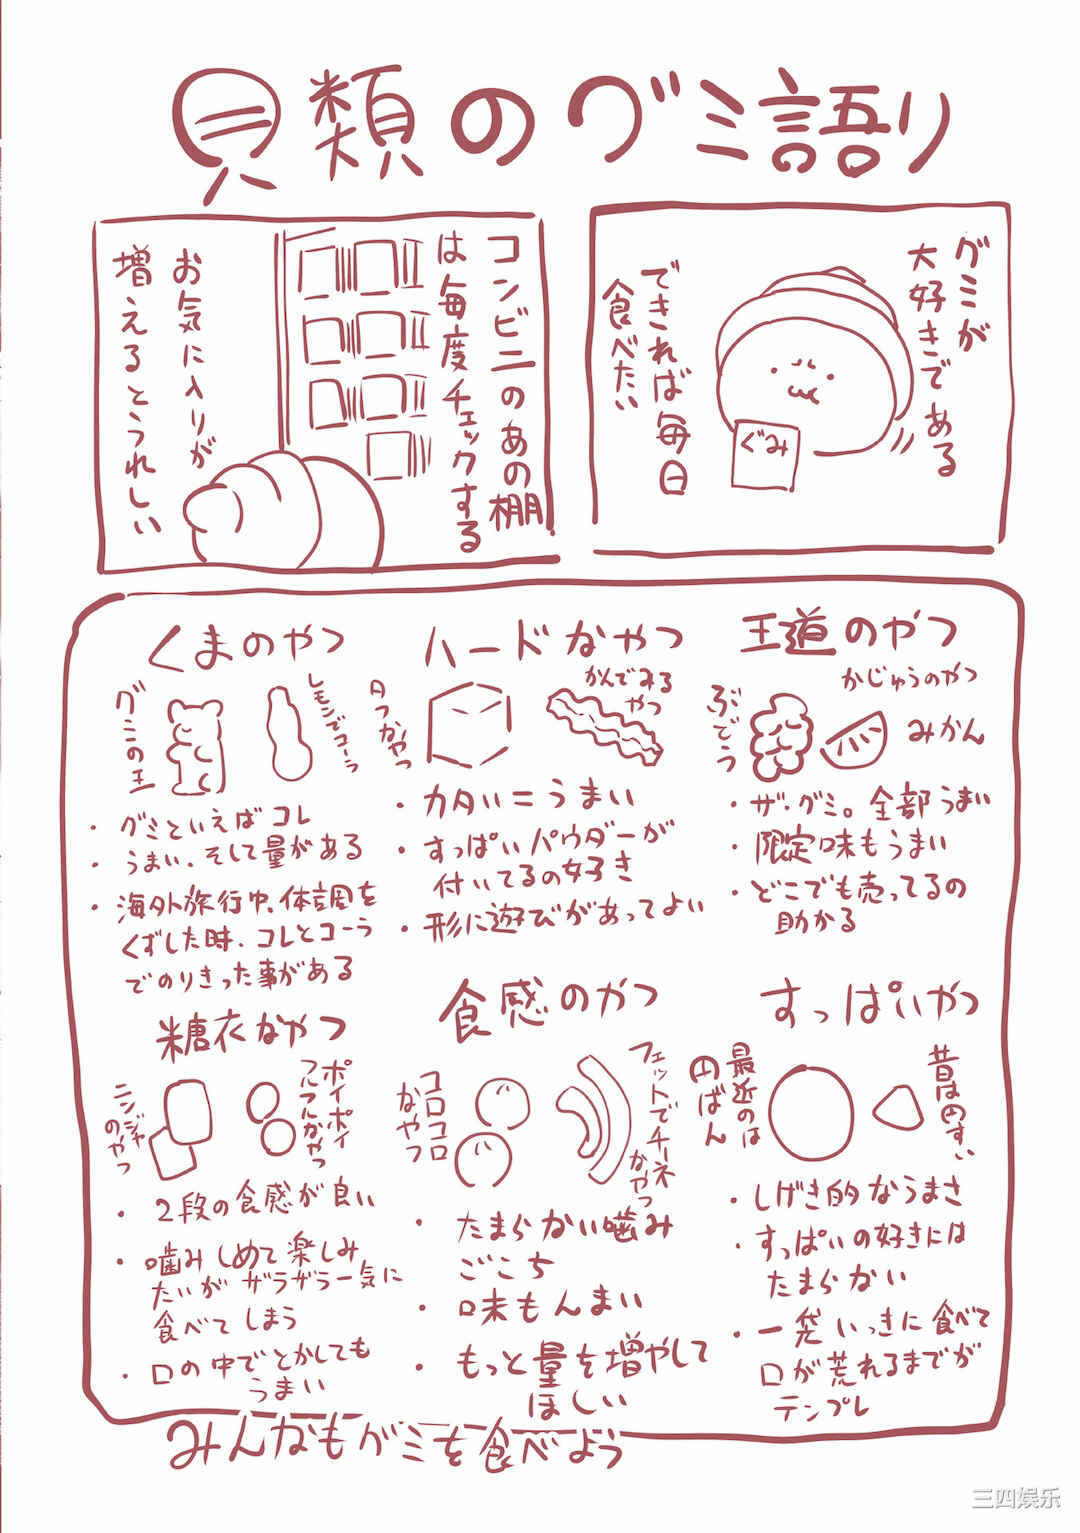 貝類のグミ語り
グミが
大好きである
できれば毎日
食べたい
ぐみ
コンビニのあの棚
は毎度チェックする
お気に入りが
増えるとうれしい
王道のやつ
かじゅうのやつ
ぶどう
みかん
・ザ・グミ。全部うまい
・限定味もうまい
・どこでも売ってるの
助かる
ハードなやつ
かんでみる
やつ
タフなやつ
・カタい＝うまい
・すっぱいパウダーが
付いてるの好き
・形に遊びがあってよい
くまのやつ
グミの王
レモンでコーラ
・グミといえばコレ
・うまい、そして量がある
・海外旅行中、体調を
くずした時、コレとコーラ
でのりきった事がある
すっぱいやつ
昔は円すい
最近のは
円ばん
・しげき的なうまさ
・すっぱいの好きには
たまらない
・一発いっきに食べて
口が荒れるまでが
テンプレ
食感のやつ
フェットでチーネ
なやつ
コロコロ
なやつ
・たまらない噛み
ごこち
・味もんまい
・もっと量を増やして
ほしい
糖衣なやつ
ポイポイ
フルフルなやつ
ニンジャ
のやつ
・2段の食感が良い
・噛みしめて楽しみ
たいがザラザラ一気に
食べてしまう
・口の中でとかしても
うまい
みんなもグミを食べよう
三四娱乐